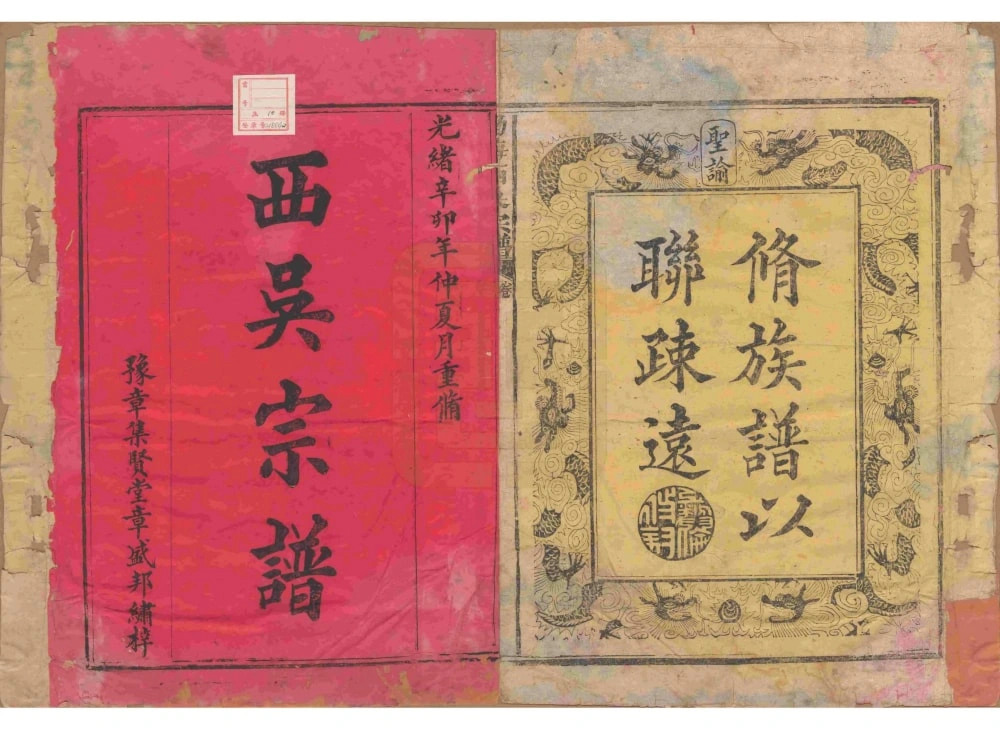 聖諭
脩族譜以
聯疎遠
光緒辛卯年仲夏月重脩
西吳宗譜
豫章集賢堂章盛邦繡梓